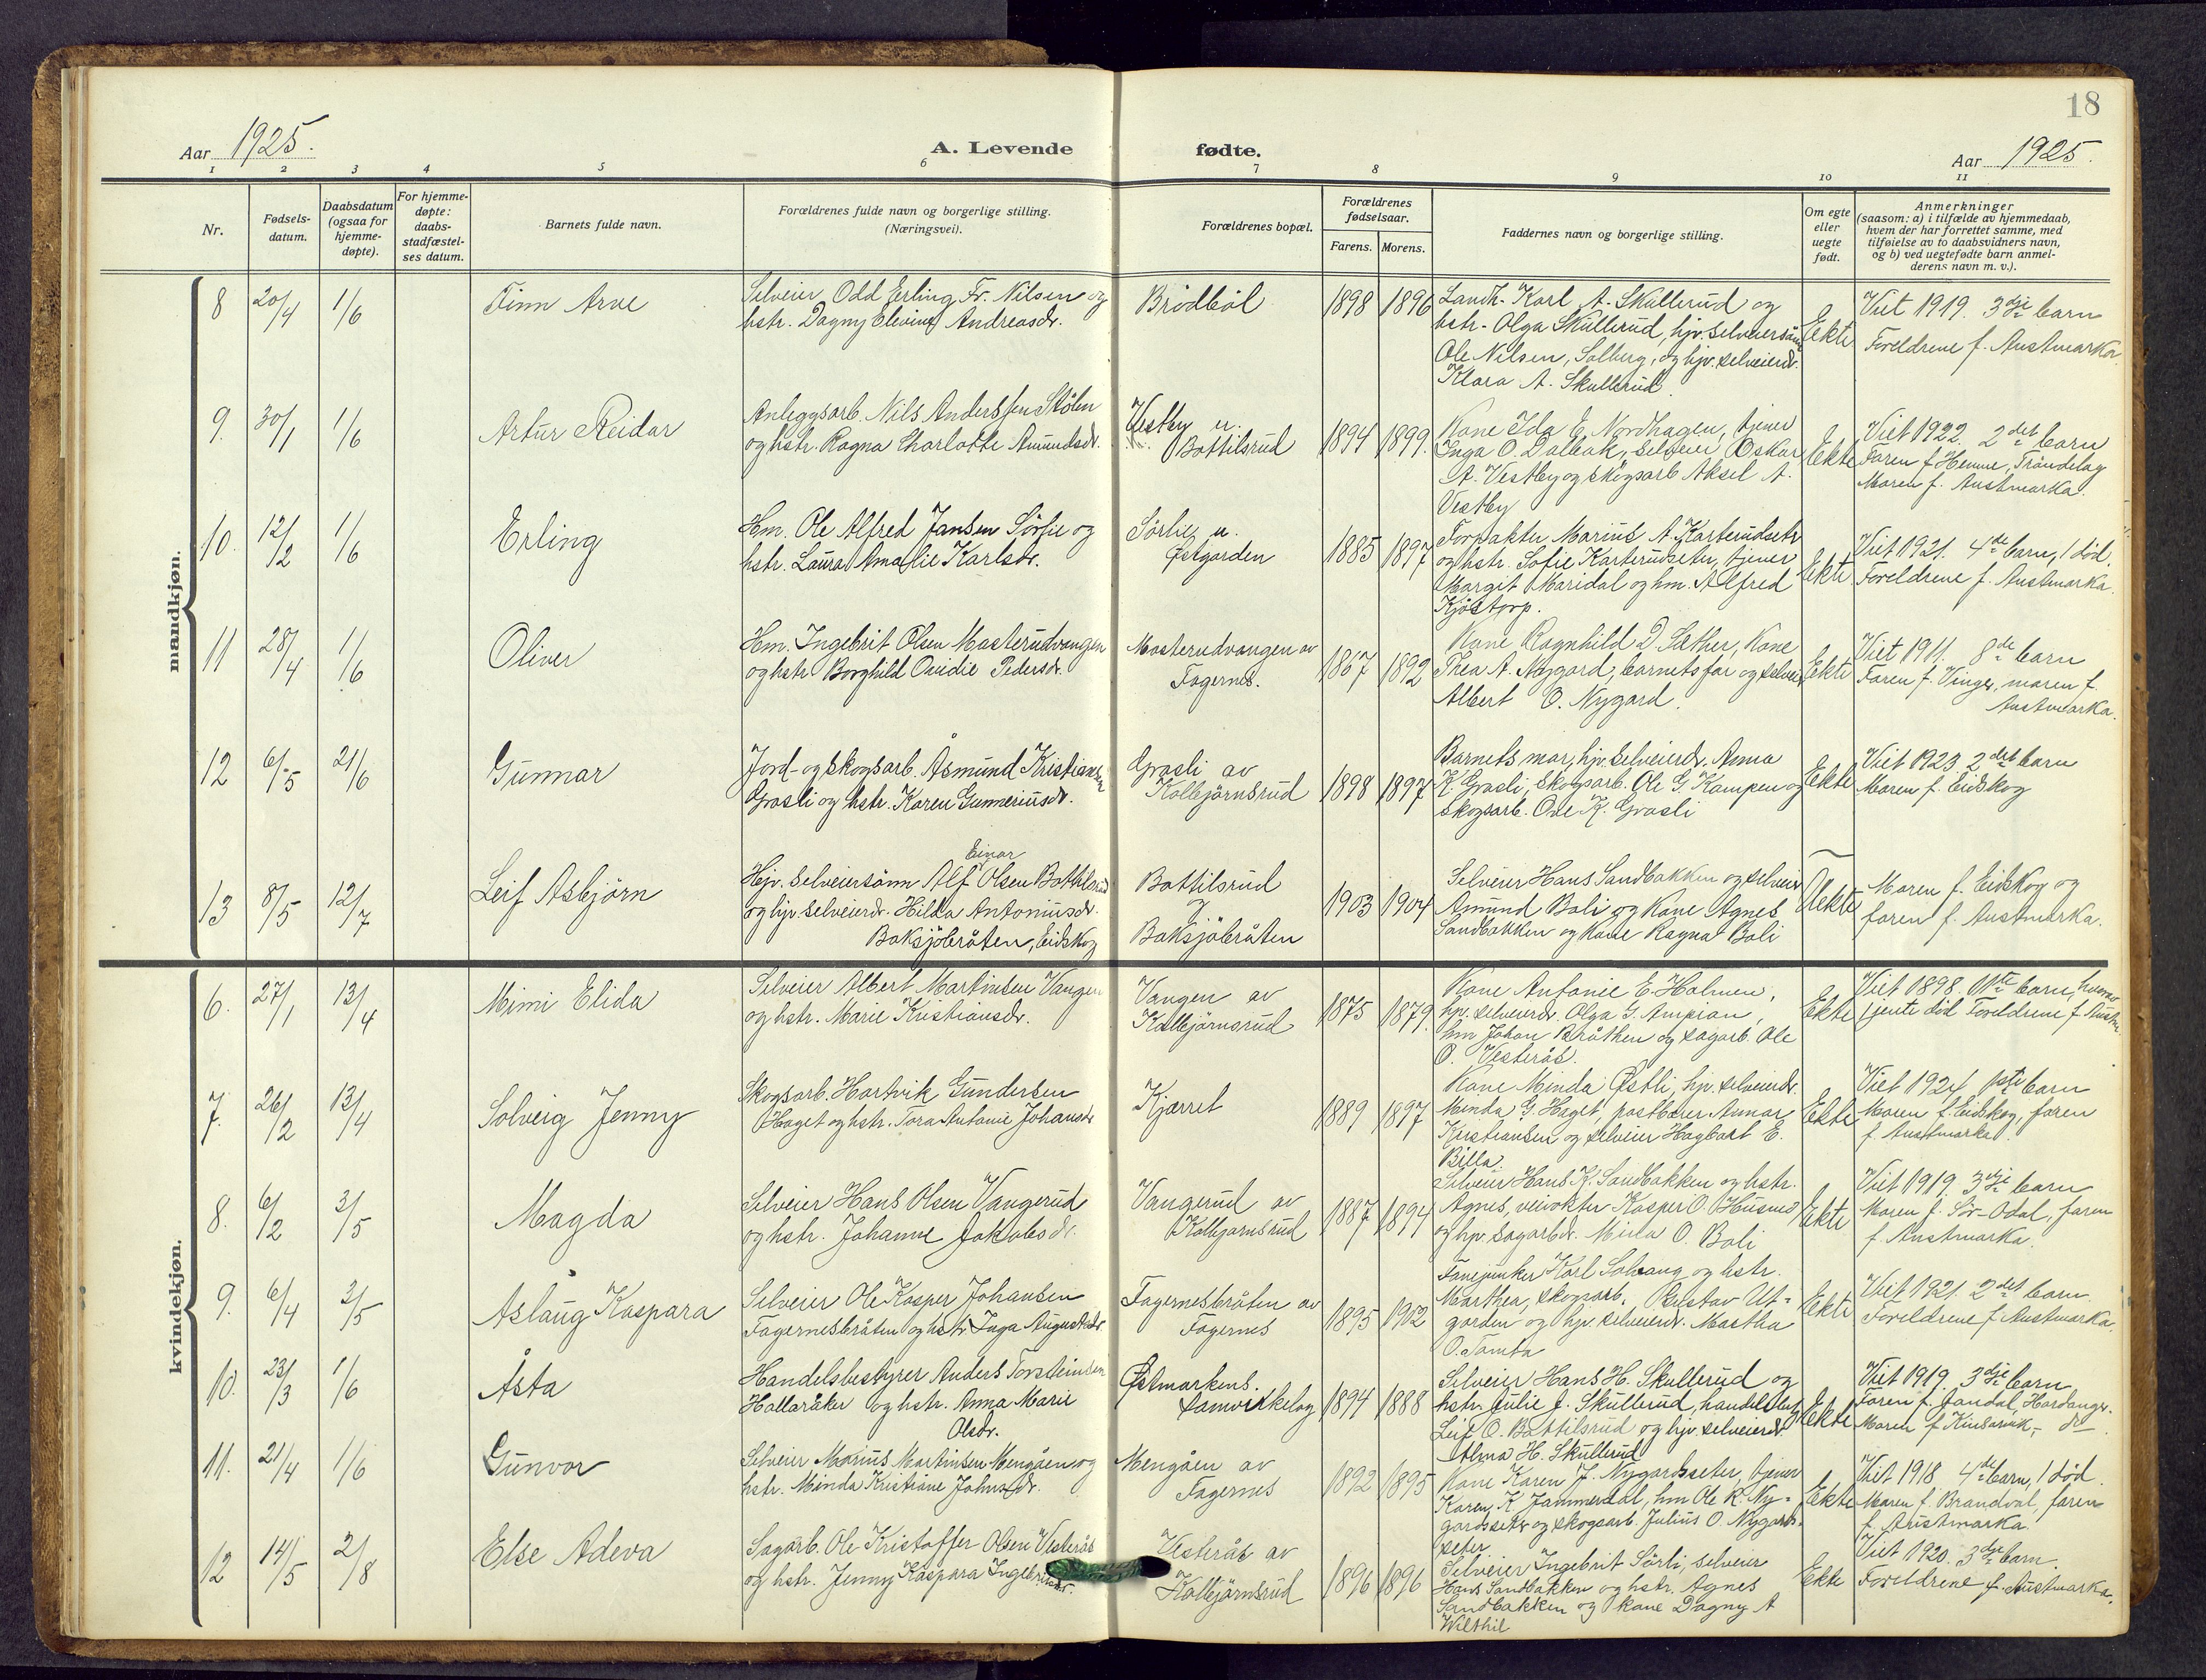 18
Aar 1925.
A. Levende fødte.
Aar 1925.
1 2 3 4 5 6 7 8 9 10 11
Nr.
Fødsels-
datum.
Daabsdatum
(ogsaa for
hjemme-
døpte).
For hjemme-
døpte:
daabs-
stadfæstel-
ses datum.
Barnets fulde navn.
Forældrenes fulde navn og borgerlige stilling.
(Næringsvei).
Forældrenes bopæl.
Forældrenes
fødselsaar.
Farens. Morens.
Faddernes navn og borgerlige stilling.
Om egte
eller
uegte
født.
Anmerkninger
(saasom: a) i tilfælde av hjemmedaab,
hvem der har forrettet samme, med
tilføielse av to daabsvidners navn,
og b) ved uegtefødte barn anmel-
derens navn m. v.).
mandkjøn.
8 20/4 1/6 Finn Arve
Selveier Odd Erling Fr. Nilsen og
hstr. Dagny Elevine Andreasdr.
Brödböl
1898 1896
Landh. Karl A. Skullerud og
hstr. Olga Skullerud, hjv. selveiersönn
Ole Nilsen, Solberg, og hjv. selveierdr.
Klara A. Skullerud.
Ekte
Viet 1919. 3dje barn
Foreldrene f. Austmarka
9. 30/1 1/6 Artur Reidar
Anleggsarb. Nils Anderssen Stölen
og hstr. Ragna Charlotte Amundsdr.
Vestby u.
Bottilsrud
1894 1899.
Kone Ida E. Nordhagen, tjener
Inga O. Dalbak, selveier Oskar
A. Vestby og skogsarb. Aksel A.
Vestby
Ekte
Viet 1922. 2det barn
Faren f. Hemne, Tröndelag
Moren f. Austmarka.
10. 12/2 1/6 Erling
Hm. Ole Alfred Jansen Sörlie og
hstr. Laura Amalie Karlsdr.
Sörlie u.
Östgarden
1885 1897
Forpakter Marius A. Karterudseter
og hstr. Sofie Karterudseter, tjener
Margit Maridal og hm. Alfred
Kjöstorp.
Ekte
Viet 1921. 4de barn, 1 död.
Foreldrene f. Austmarka.
11 28/4 1/6 Oliver
Hm. Ingebrit Olsen Masterudvangen
og hstr. Borghild Ovidie Pedersdr.
Masterudvangen av
Fagernes.
1867 1892
Kone Ragnhild D. Sæther, Kone
Thea A. Nygard, barnets far og selveier
Albert O. Nygard.
Ekte
Viet 1911. 8de barn
Faren f. Vinger, moren f.
Austmarka.
12 6/5 21/6 Gunnar
Jord- og skogsarb. Åsmund Kristiansen
Grasli og hstr. Karen Gunneriusdr.
Grasli av
Kolbjörnsrud
1898 1897
Barnets mor, hjv. selveierdr. Anna
K. Grasli, skogsarb. Ole G. Kampen og
skogsarb. Ove K. Grasli
Ekte
Viet 1923. 2det barn
Moren f. Eidskog
13 8/5 12/7 Leif Asbjörn
Einar
Hjv. selveiersönn Alf Olsen Bottilsrud
og hjv. selveierdr. Hilda Antoniusdr.
Baksjöbråten, Eidskog
Bottilsrud
og
Baksjöbråten
1903 1904
Selveier Hans Sandbakken og selveier
Amund Boli og Kone Agnes
Sandbakken og Kone Ragna Boli
Uekte
Moren f. Eidskog og
faren f. Austmarka.
kvindekjøn.
6. 27/1 13/4 Mimi Elida
Selveier Albert Martinsen Vangen
og hstr. Marie Kristiansdr.
Vangen av
Kolbjörnsrud
1875 1879.
Kone Antonie E. Holmen,
hjv. selveierdr. Olga G. Ampran,
hm Johan Bråthen og sagarb. Ole
O. Vesterås.
Ekte
Viet 1898. 11te barn, hvorav
1 jente död Foreldrene f. Austm.
7. 26/2 13/4 Solveig Jenny
Skogsarb. Hartvik Gundersen
Haget og hstr. Tora Antonie Johansdr
Kjærret
1889 1897
Kone Minda Østli, hjv. selveierdr.
Minda G. Haget, postbærer Annar
Kristiansen og selveier Hagbart E.
Billa.
Ekte
Viet 1924 1ste barn
Moren f. Eidskog, faren
f. Austmarka.
8. 6/2 3/5 Magda
Selveier Hans Olsen Vangerud
og hstr. Johanne Jakobsdr.
Vangerud av
Kolbjørnsrud
1887 1894
Selveier Hans K. Sandbakken og hstr.
Agnes, veivokter Kasper O. Husmo
og hjv. sagarbdr. Mirla O. Boli
Ekte
Viet 1919. 3dje barn
Moren f. Sör-Odal, faren
f. Austmarka.
9. 6/4 3/5 Aslaug Kaspara
Selveier Ole Kasper Johansen
Fagernesbråten og hstr. Inga Augustdr.
Fagernesbråten av
Fagernes
1895 1902
Fanejunker Karl Solvang og hstr.
Marthea, skogsarb. Gustav Ut-
garden og hjv. selveierdr. Martha
O. Tomta
Ekte
Viet 1921. 2det barn
Foreldrene f. Austmarka.
10. 23/3 1/6 Åsta
Handelsbestyrer Anders Torsteinsen
Hallaråker og hstr. Anna Marie
Olsdr.
Østmarkens.
samvirkelag
1894 1888
Selveier Hans H. Skullerud og
hstr. Julie J. Skullerud, handelsbetj.
Leif O. Bottilsrud og hjv. selveierdr.
Alma H. Skullerud
Ekte
Viet 1919. 3dje barn
Faren f. Jondal, Hardanger.
Moren f. Kinsarvik, – do
11. 21/4 1/6 Gunvor
Selveier Marius Martinsen Mengåen og
hstr. Minda Kristiane Johnsdr.
Mengåen av
Fagernes
1892 1895
Kone Karen J. Nygardsseter, tjener
Karen K. Jammerdal, hm Ole K. Ny-
gardsseter og skogsarb. Julius O. Nygards-
seter
Ekte
Viet 1918 4de barn, 1 död.
Moren f. Brandval, faren
f. Austmarka.
12 14/5 2/8 Else Adeva
Sagarb. Ole Kristoffer Olsen Vesterås
og hstr. Jenny Kaspara Ingebritsdr.
Vesterås av
Kolbjörnsrud
1896 1896
Selveier Ingebrit Sörli, selveier
Hans Sandbakken og hstr. Agnes
Sandbakken og kone Dagny A
Wilthil
Ekte
Viet 1920. 3dje barn.
Foreldrene f. Austmarka.